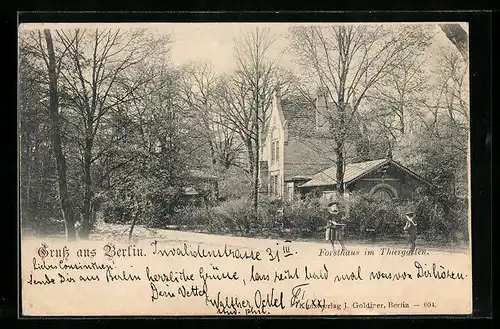 Gruß aus Berlin. Invalidenstrasse 31 III
Forsthaus im Thiergarten.
Liebes Cousinchen!
Sende Dir aus Berlin herzliche Grüsse, lass recht bald mal was von Dir hören.
Dein Vetter
Walther
stud. phil.
Kunstverlag J. Goldiner, Berlin — 604.